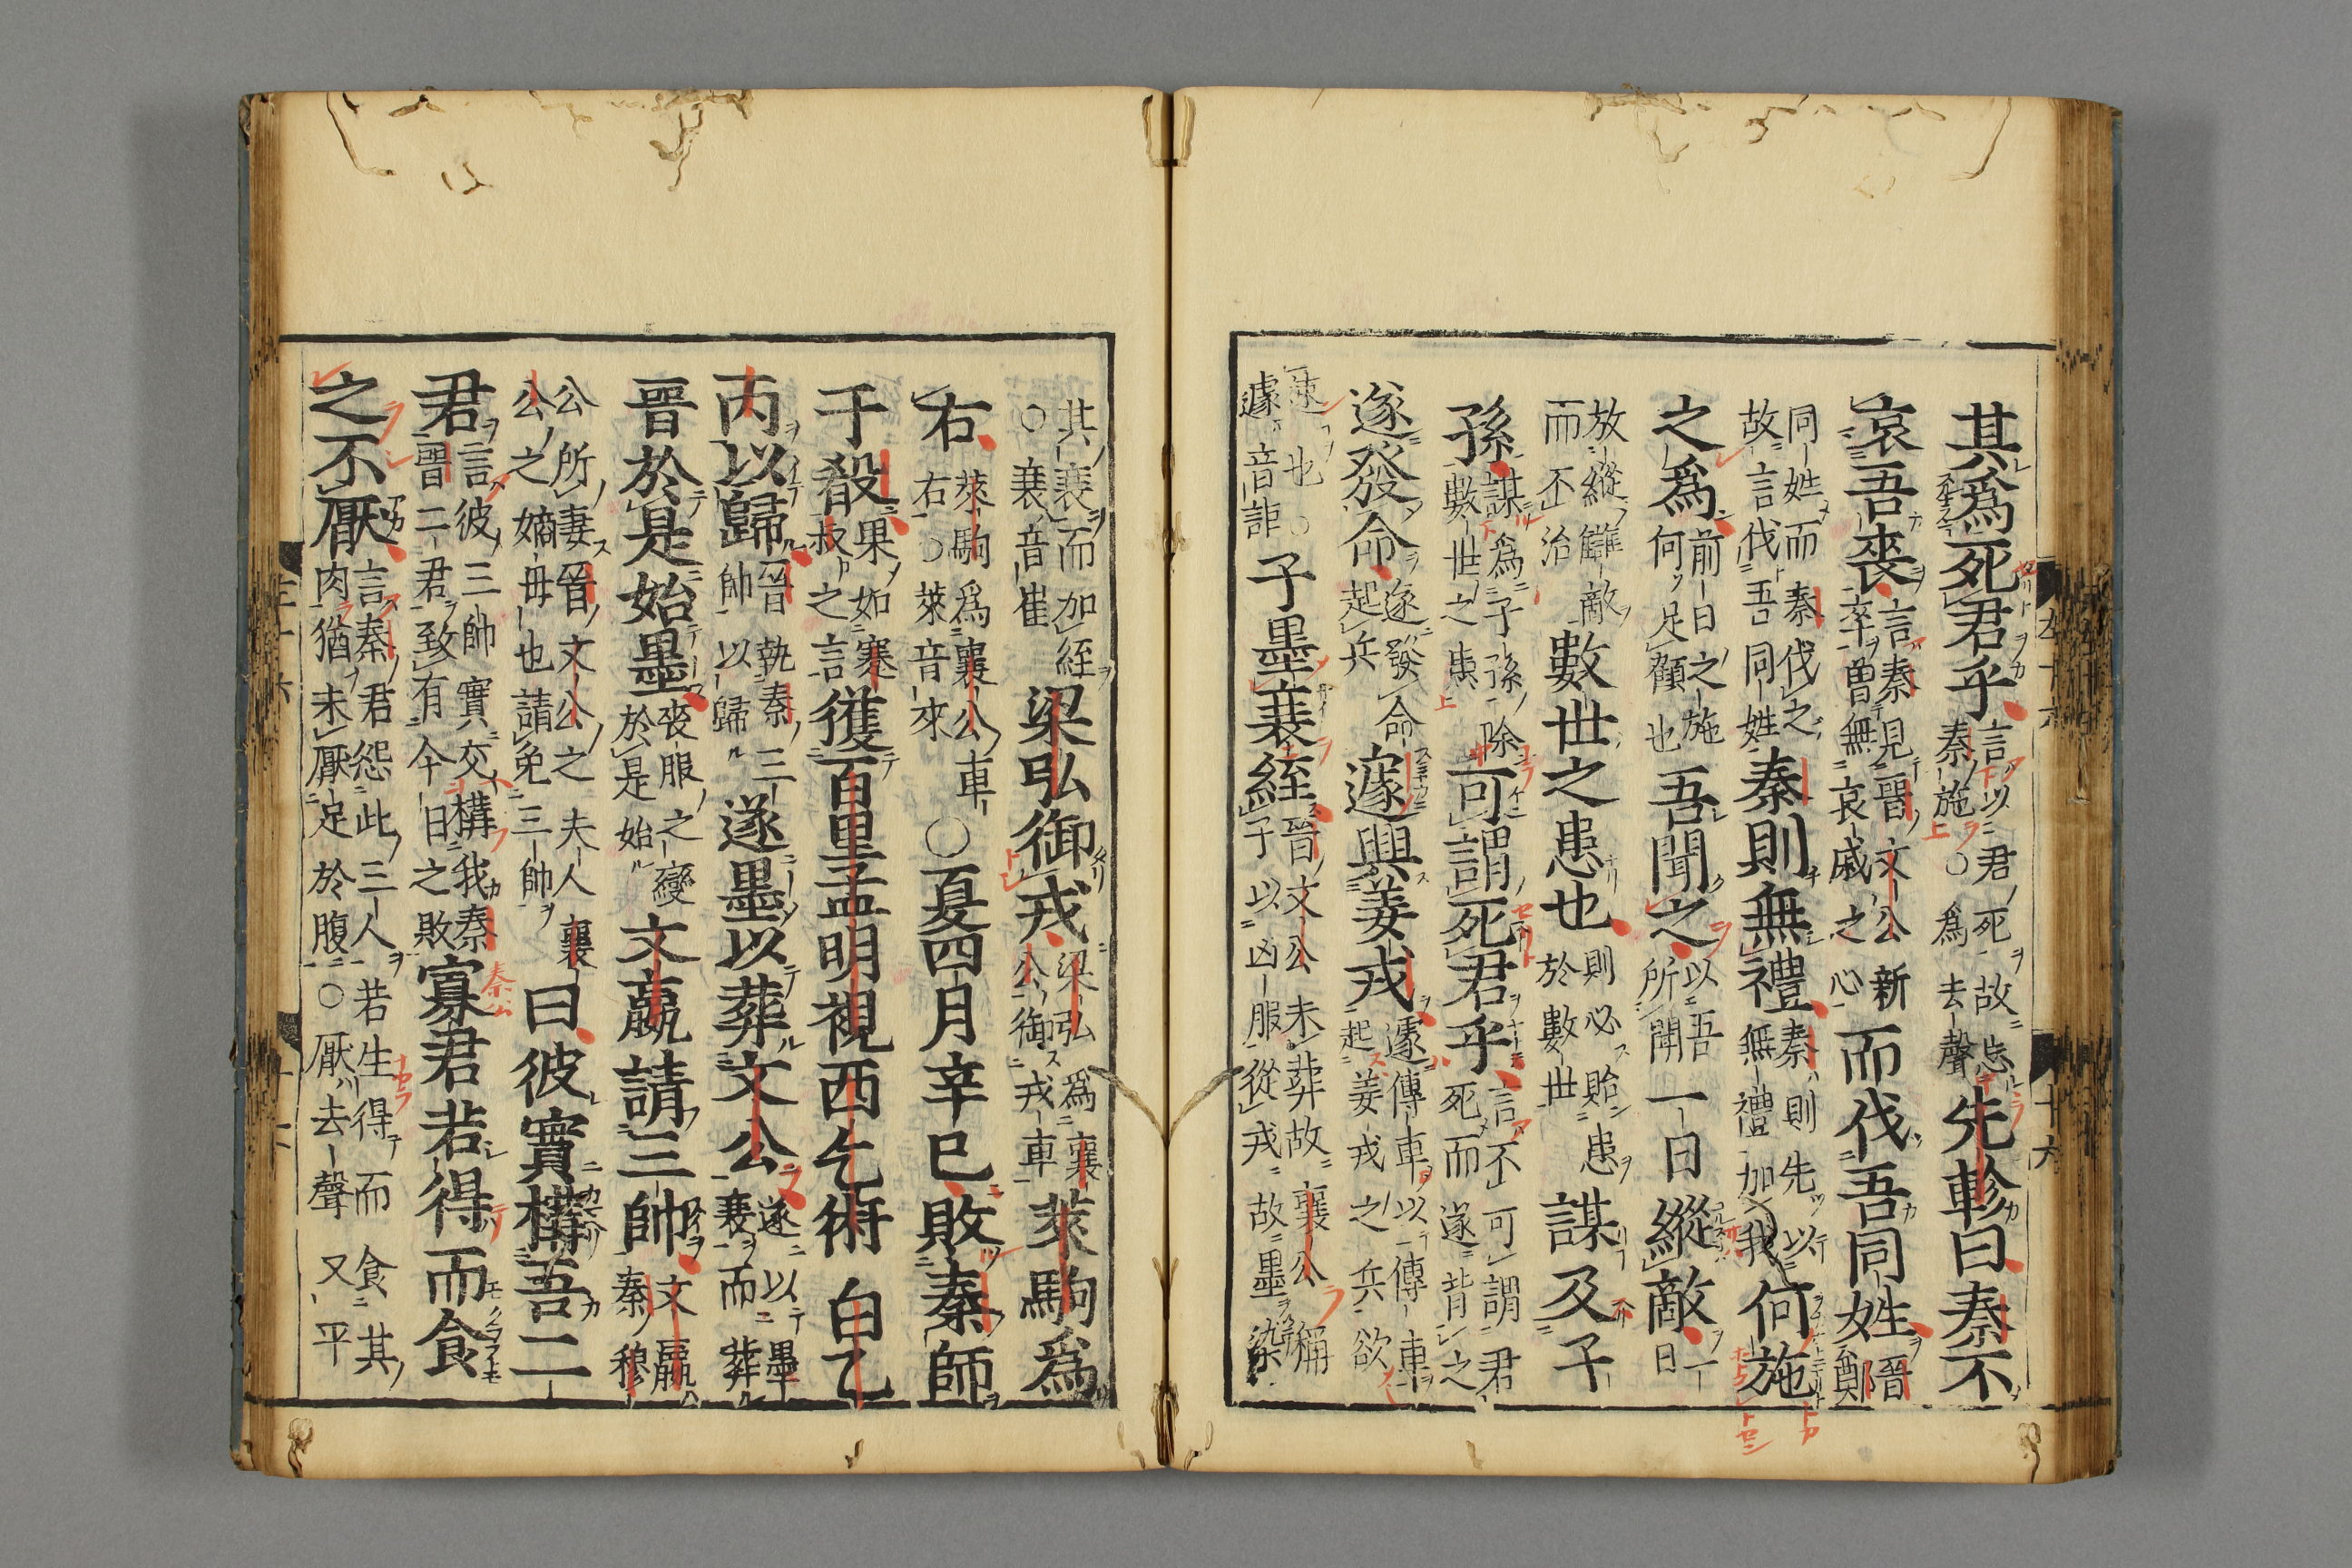 其爲死君乎言以君死故忘秦施○爲去聲先軫曰秦不
哀吾喪言秦見晉文公新卒曾無哀戚之心而伐吾同姓晉鄭
同姓而秦伐之故言伐吾同姓秦則無禮秦則先以無禮加我何施
之爲前日之施何足顧也吾聞之以吾所聞一日縱敵一日
放縱讎敵而不治數世之患也則必貽患於數世謀及子
孫謀爲子孫除數世之患可謂死君乎言不可謂君死而遂背之
遂發命遂發命起兵遽興姜戎遽傳車以傳車起姜戎之兵欲
速也○遽音詎子墨衰絰晉文公未葬故襄公稱子以凶服從戎故墨染
其衰而加絰○衰音崔梁弘御戎梁弘爲襄公御戎車萊駒爲
右萊駒爲襄公車右○萊音來○夏四月辛巳敗秦師
于殽果如蹇叔之言獲百里孟明視西乞術白乙
丙以歸晉執秦三帥以歸遂墨以葬文公遂以墨衰而葬
晉於是始墨喪服之變於是始文嬴請三帥文嬴秦穆
公所妻晉文公之夫人襄公之嫡母也請免三帥曰彼實構吾二
君言彼三帥實交構我秦晉二君致有今日之敗寡君若得而食
之不厭言秦君怨此三人若生得而食其肉猶未厭足於腹○厭去聲又平